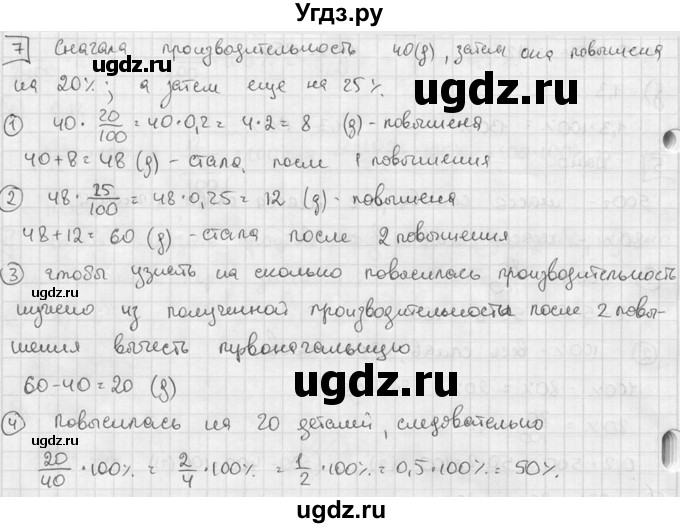 Угдз.ру
7 Сначала производительность 40(g), затем она повышена
на 20%; а затем еще на 25%.
① 40 · 20/100 = 40·0,2 = 4·2 = 8 (g) - повышена
40+8 = 48 (g) - стала после 1 повышения
② 48 · 25/100 = 48·0,25 = 12 (g) - повышена
48+12 = 60 (g) - стала после 2 повышения
③ чтобы узнать на сколько повысилась производительность
нужно из полученной производительности после 2 повы-
шения вычесть первоначальную
60-40=20 (g)
④ Повысилась на 20 деталей, следовательно
20/40 · 100% = 2/4 · 100% = 1/2 · 100% = 0,5 · 100% = 50%.
ugdz.ru
ugdz.ru
ugdz.ru
ugdz.ru
ugdz.ru
ugdz.ru
ugdz.ru
ugdz.ru
ugdz.ru